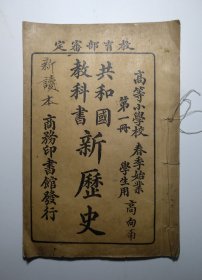 教育部審定
高等小學校 春季始業
第一冊 學生用
高向南
共和國教科書
新歷史
新讀本
商務印書館發行